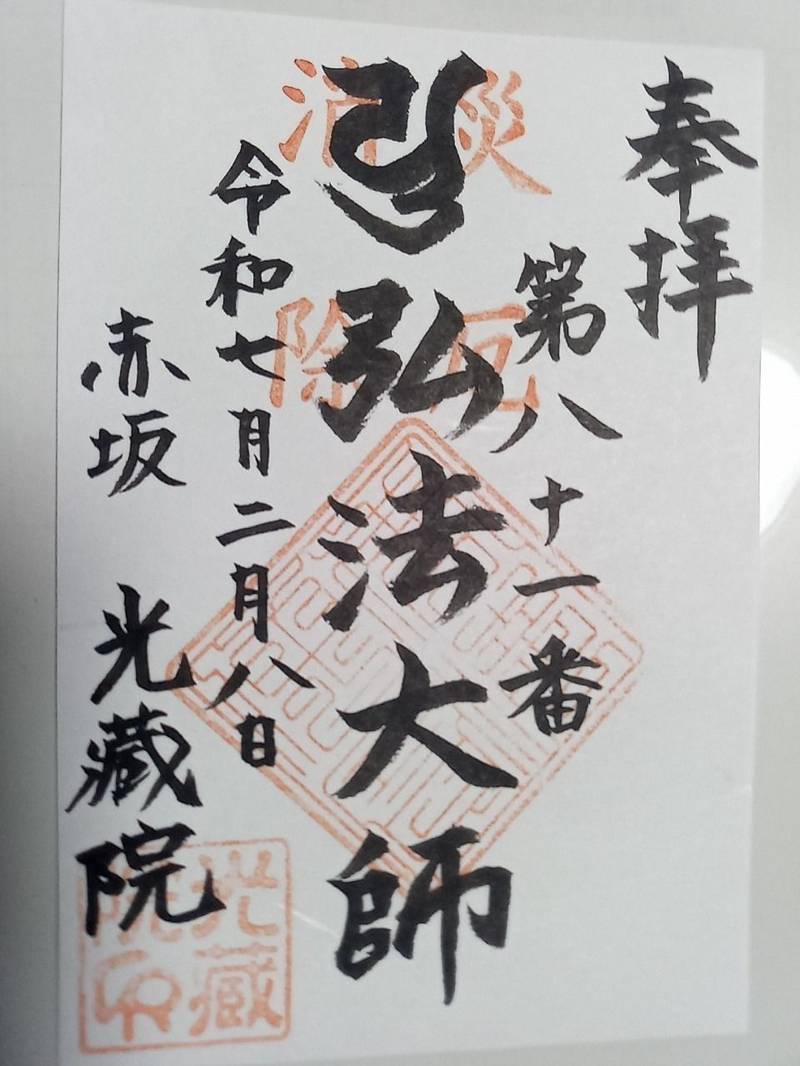 奉拝
第八十一番
弘法大師
令和七月二月八日
赤坂 光蔵院
災厄
消除
光蔵
院印